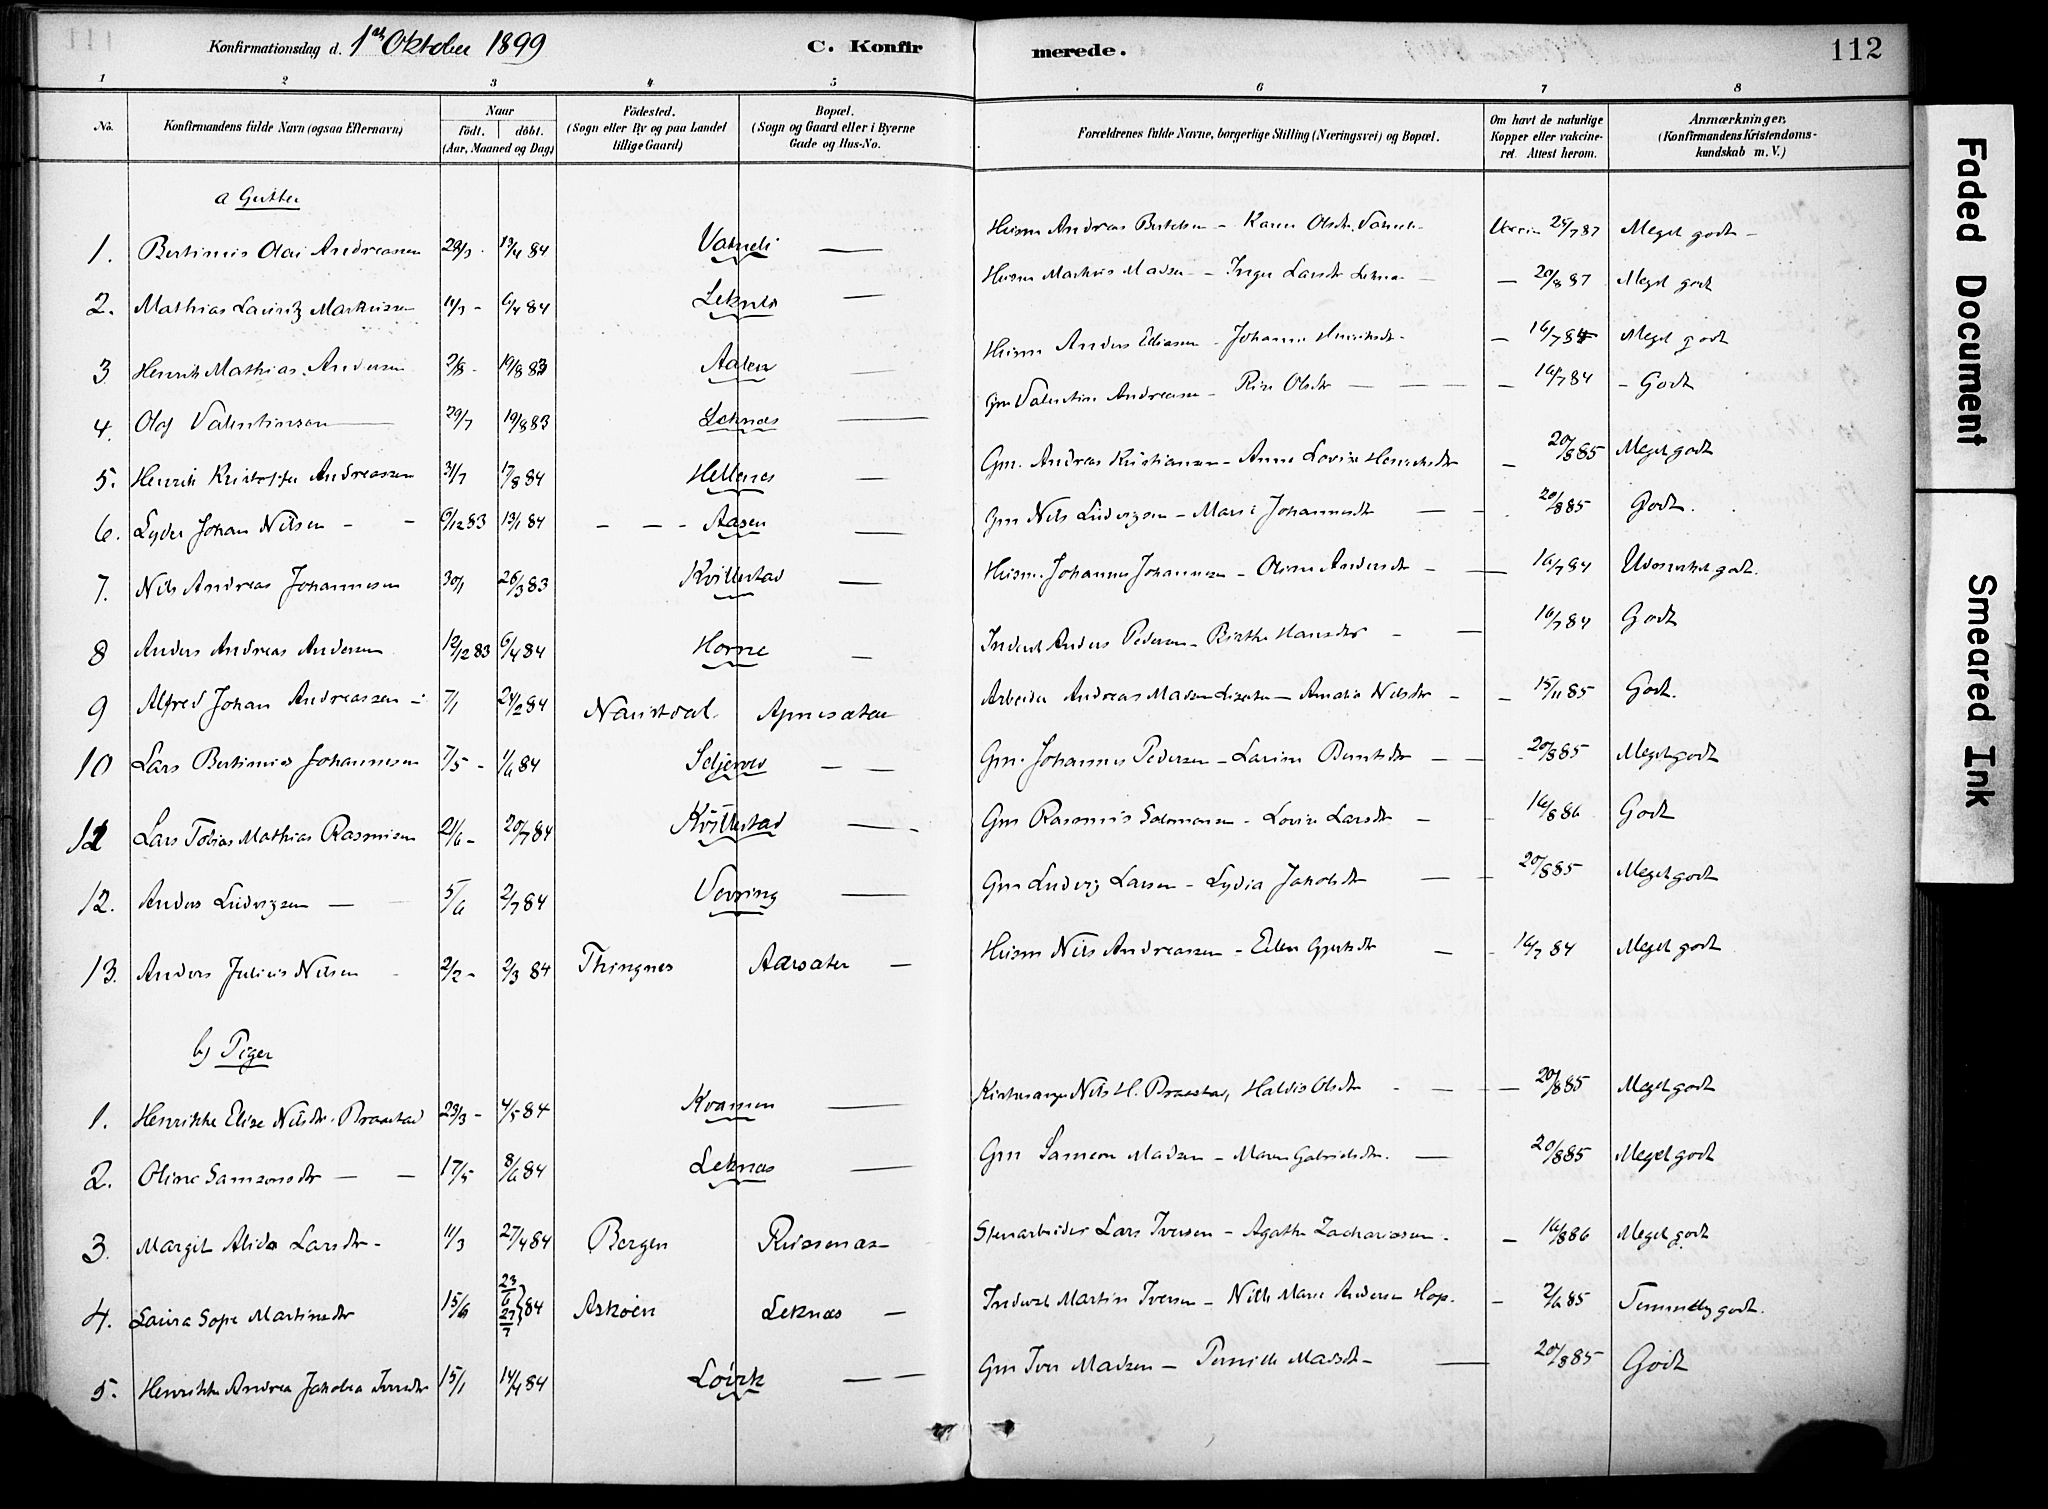 Konfirmationsdag d. 1ste Oktober 1899 C. Konfirmerede. 112
1 2 3 4 5 6 7 8
No. Konfirmandens fulde Navn (ogsaa Efternavn) Naar födt. döbt. (Aar, Maaned og Dag) Födested. (Sogn eller By og paa Landet tillige Gaard) Bopæl. (Sogn og Gaard eller i Byerne Gade og Hus-No. Forældrenes fulde Navne, borgerlige Stilling (Næringsvei) og Bopæl. Om havt de naturlige Kopper eller vakcineret. Attest herom. Anmærkninger. (Konfirmandens Kristendomskundskab m. V.)
a Gutter
1. Bertinius Olai Andreassen 13/4 84 — Husm Andreas Bertelsen – Karen Olsdtr. 25/7 87 Meget godt –
2. Mathias Lauritz Markussen 11/3 – 6/4 84 Leknes — Husm Markus Madsen – Inger Larsdtr — 20/8 87 Meget godt
3 Henrik Mathias Andersen 2/8 – 19/8 83 — Husm Anders Eliasen – Johanne Henriksdtr – — 16/7 84 Meget godt
4. Olaf Valentinsen 29/7 19/8 83 Leknæs — Gm Valentin Andreasen – Olsdtr — 16/7 84 – Godt
5. Henrik Kristoffer Andreassen 31/7 17/8 84 Hellenes — Gm. Andreas Kristiansen – Anne Lovise Henriksdtr – 20/8 85 Meget godt
6. Lyder Johan Nilsen – – 6/12 83 13/1 84 – – – Aasen — Gm Nils Ludvigsen – Marie Johannesdtr — 20/8 85 Godt.
7. Nils Andreas Johannesen 30/1 26/3 83 Kvillestad — Husm. Johannes Johannesen – Oline Andersdtr – — 16/7 84 Udmerket godt.
8 Anders Andreas Andersen 12/12 83 6/4 84 Horne — Inderst Anders Pedersen – Birthe Hansdtr – — 16/7 84 Godt
9 Alfred Johan Andreassen – 7/1 24/2 84 Naustdal Apnesæter Arbeider Andreas Madsen – Amalia Nilsdtr – – 15/11 85 Godt.
10 Lars Bertinius Johannesen 7/5 – 1/6 84 — — Gm. Johannes Pedersen – Larine Berntsdtr — 20/8 85 Meget godt
11 Lars Tobias Mathias Rasmusen 21/6 – 20/7 84 Kvillestad — Gm Rasmus Salomonsen – Lovise Larsdtr – 16/8 86 Godt
12. Anders Ludvigsen — 5/6 2/7 84 Vevring — Gm Ludvig Larsen – Lydia Jakobsdtr — 20/8 85 Meget godt
13. Anders Julius Nilsen – 2/2 – 2/3 84 Thingnes Aarsæter — Husm Nils Andreassen – Ellen Gjertsdtr — 16/7 84 Meget godt
b) Piger
1. Henrikke Elise Nilsdtr. Præstad 23/3 – 4/5 84 Kvamen — Kirkesanger Nils H. Præstad, Haldis Olsdtr – — 20/8 85 Meget godt
2. Oline Samsonsdtr — — 17/5 8/6 84 Leknæs — Gm Samson Madsen – Maren Gabrielsdtr. — 20/8 85 Meget godt
3. Margit Alida Larsdtr – 11/3 27/4 84 Bergen Russenæs Stenarbeider Lars Iversen – Agathe Zachariasen. – 16/8 86 Meget godt
4. Laura Sofie Martinsdtr 15/6 23/6 27/7 84 Askøen Leknæs – Inderst Martin Iversen – Marie Andersen Hop. – 2/6 85 Temmelig godt.
5. Henrikke Andrea Jakobea Iversdtr 15/1 14/4 84 Løvik — — Gm Iver Madsen – Pernille Madsdtr – — 20/8 85 Godt
Faded Document
Smeared Ink